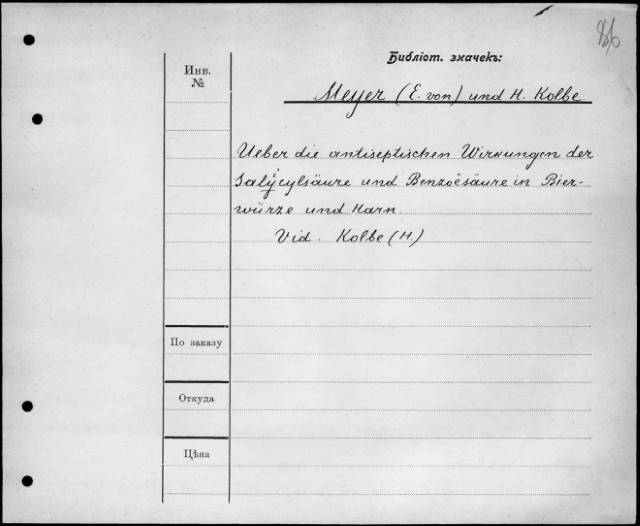 86
Библіот. значекъ:
Инв.
№
Meyer (E. von) und H. Kolbe
Ueber die antiseptischen Wirkungen der
Salycylsäure und Benzoësäure in Bier-
würze und Harn.
Vid. Kolbe (H.)
По заказу
Откуда
Цѣна